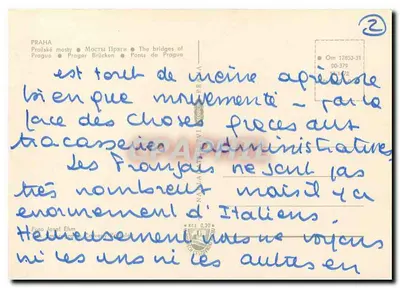 2
PRAHA
Pražské mosty • Мосты Праги • The bridges of
Prague • Prager Brücken • Ponts de Prague
est tout de même agréable
bien que mouvementé - par la
force des choses grâces aux
tracasseries administratives.
Les Français ne sont pas
très nombreux mais il y a
enormement d'Italiens.
Heureusement nous ne voyons
ni les uns ni les autres en